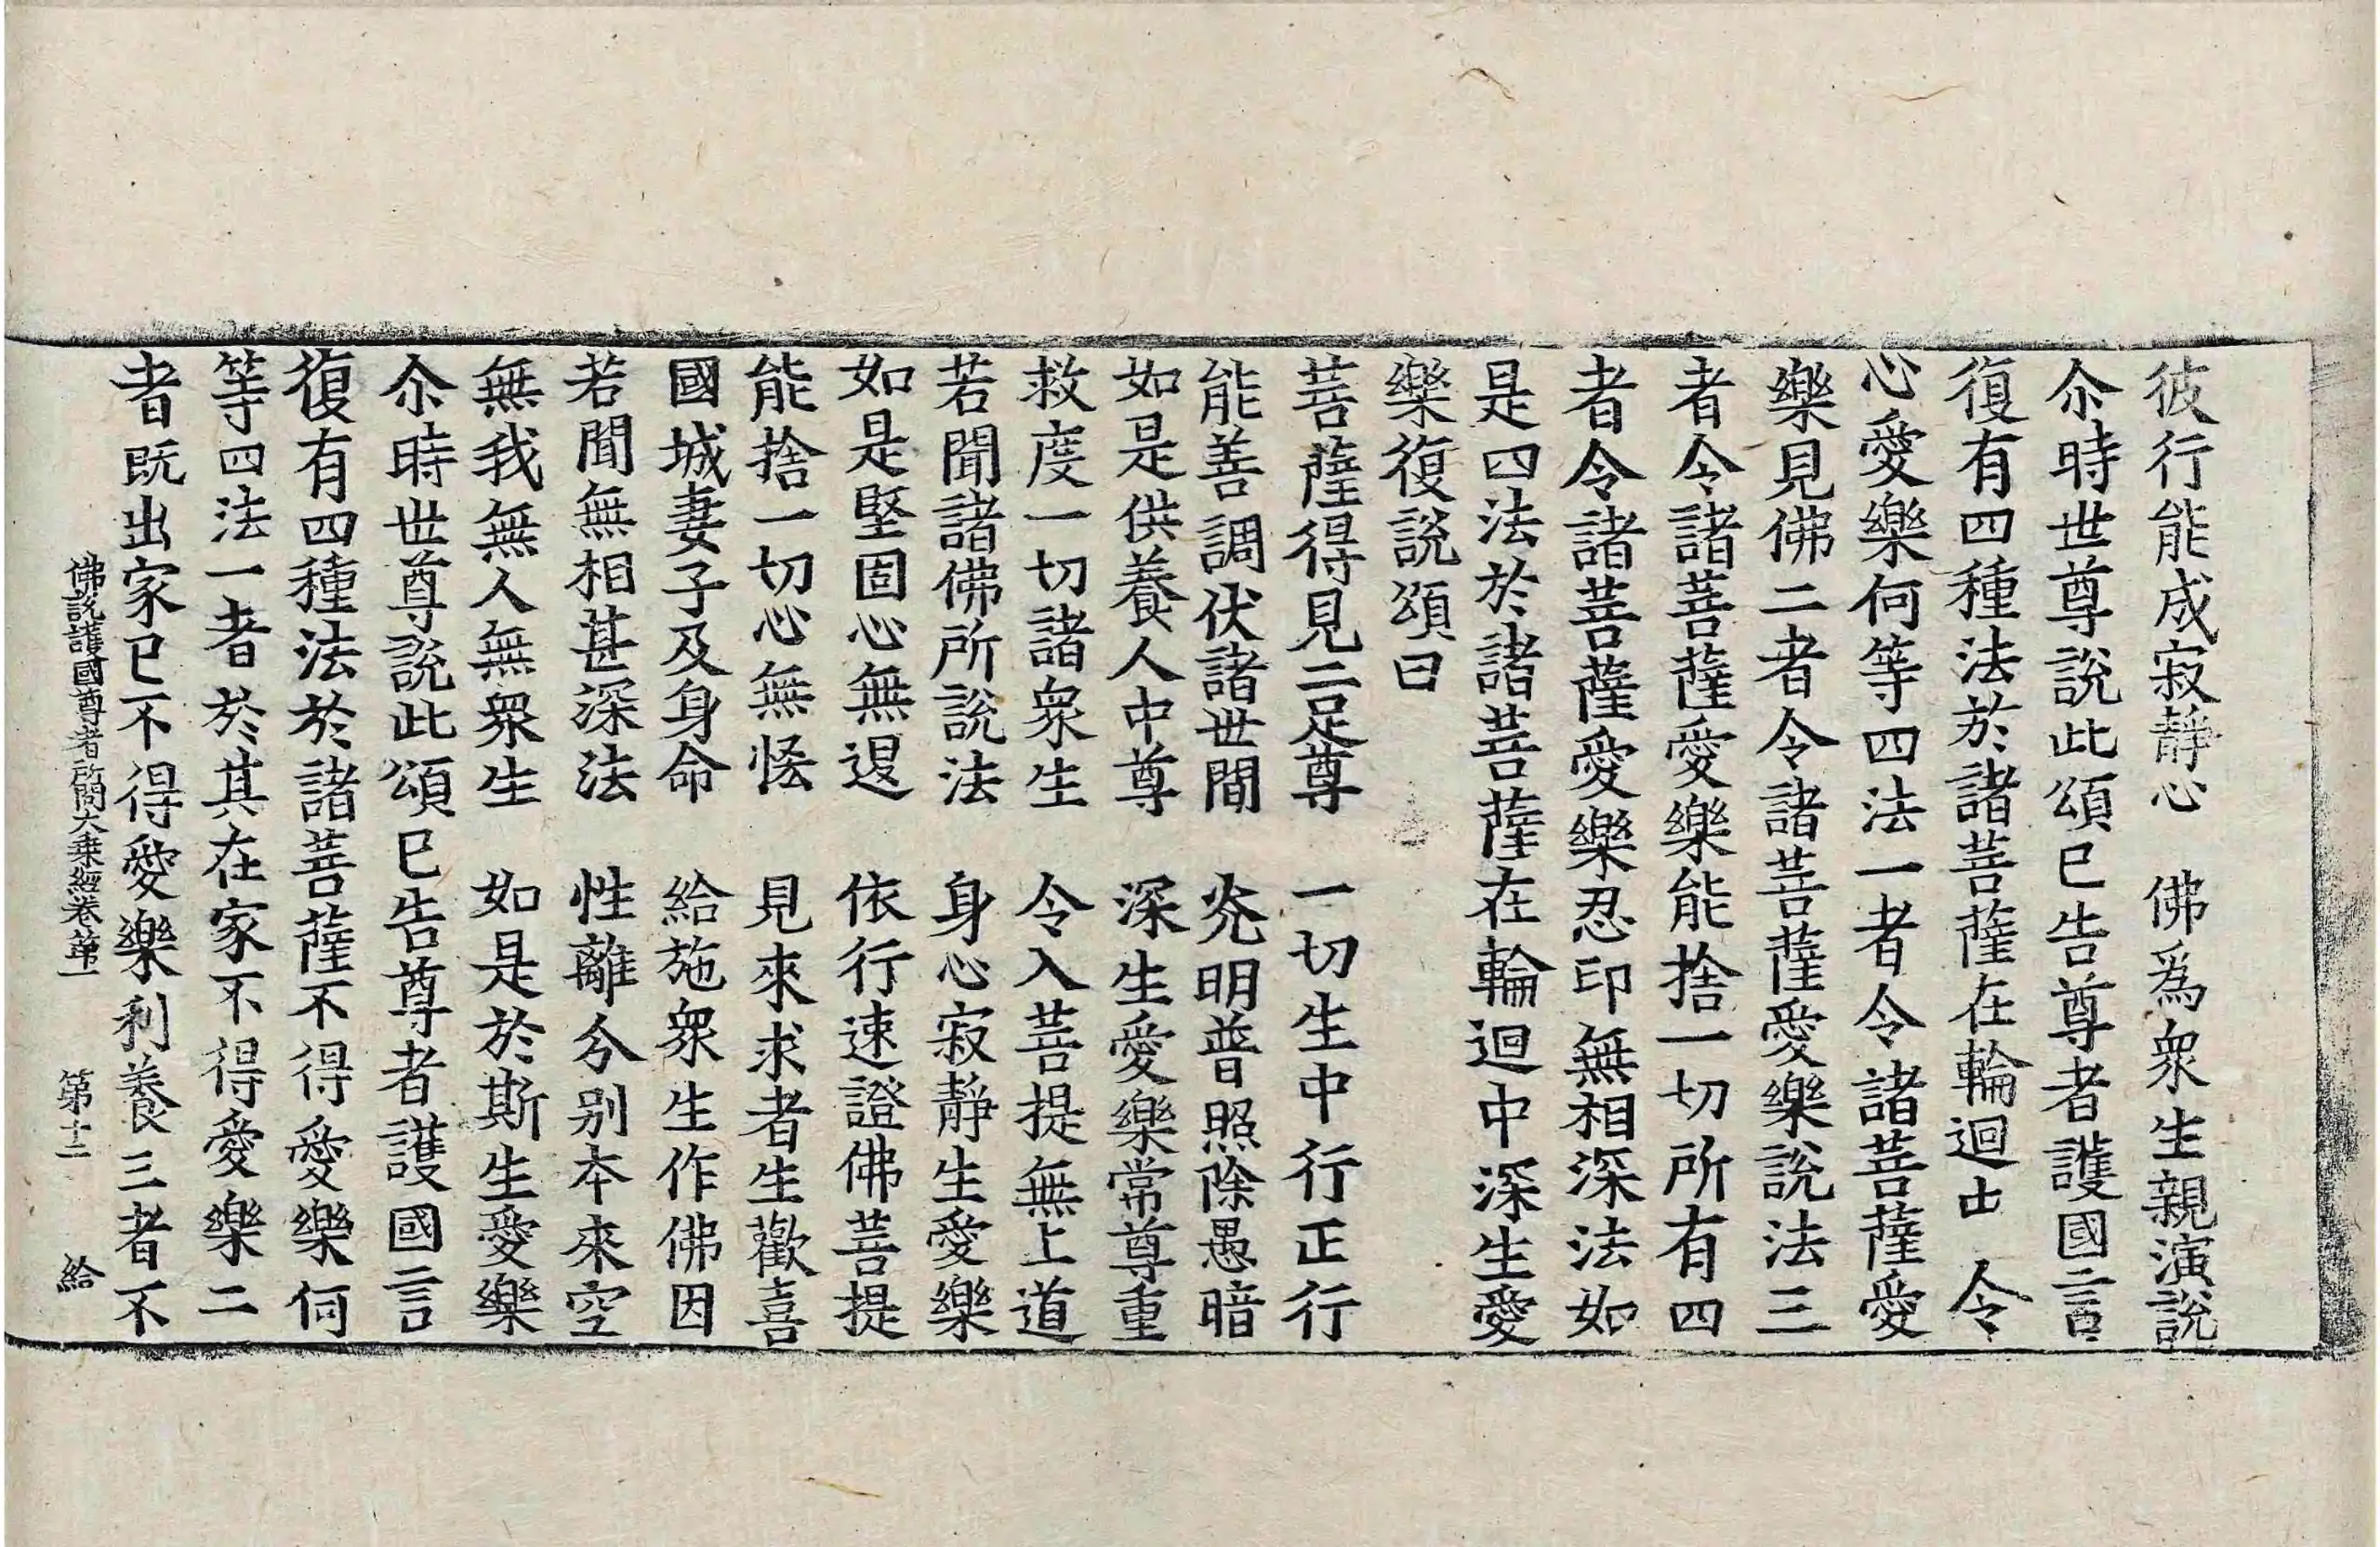 彼行能成寂靜心　佛爲衆生親演說
尒時世尊說此頌已告尊者護國言
復有四種法於諸菩薩在輪迴中　令
心愛樂何等四法一者令諸菩薩愛
樂見佛二者令諸菩薩愛樂說法三
者令諸菩薩愛樂能捨一切所有四
者令諸菩薩愛樂忍印無相深法如
是四法於諸菩薩在輪迴中深生愛
樂復說頌曰
菩薩得見二足尊　一切生中行正行
能善調伏諸世間　光明普照除愚暗
如是供養人中尊　深生愛樂常尊重
救度一切諸衆生　令入菩提無上道
若聞諸佛所說法　身心寂靜生愛樂
如是堅固心無退　依行速證佛菩提
能捨一切心無恡　見來求者生歡喜
國城妻子及身命　給施衆生作佛因
若聞無相甚深法　性離分別本來空
無我無人無衆生　如是於斯生愛樂
尒時世尊說此頌已告尊者護國言
復有四種法於諸菩薩不得愛樂何
等四法一者於其在家不得愛樂二
者既出家已不得愛樂利養三者不
佛說護國尊者所問大乗經卷第一　第十二　給